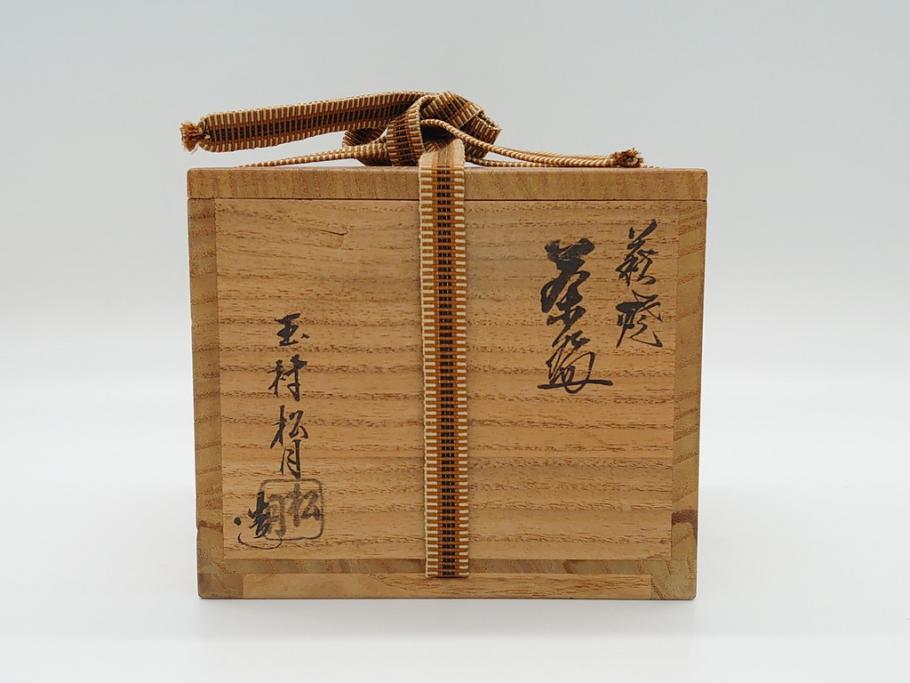 萩焼
茶碗
玉村松月
造
松月